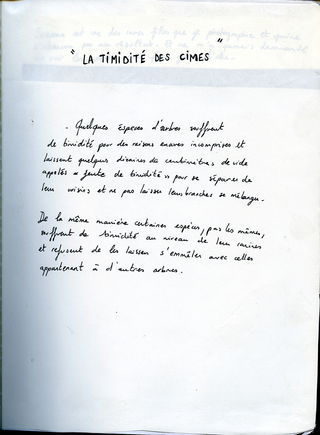 "LA TIMIDITÉ DES CIMES"
. Quelques espèces d'arbres souffrent
de timidité pour des raisons encore incomprises et
laissent quelques dizaines de centimètres de vide
appelés « fente de timidité » pour se séparer de
leur voisins et ne pas laisser leurs branches se mélanger.
De la même manière certaines espèces, pas les mêmes,
souffrent de timidité au niveau de leur racines
et refusent de les laisser s'emmêler avec celles
appartenant à d'autres arbres.